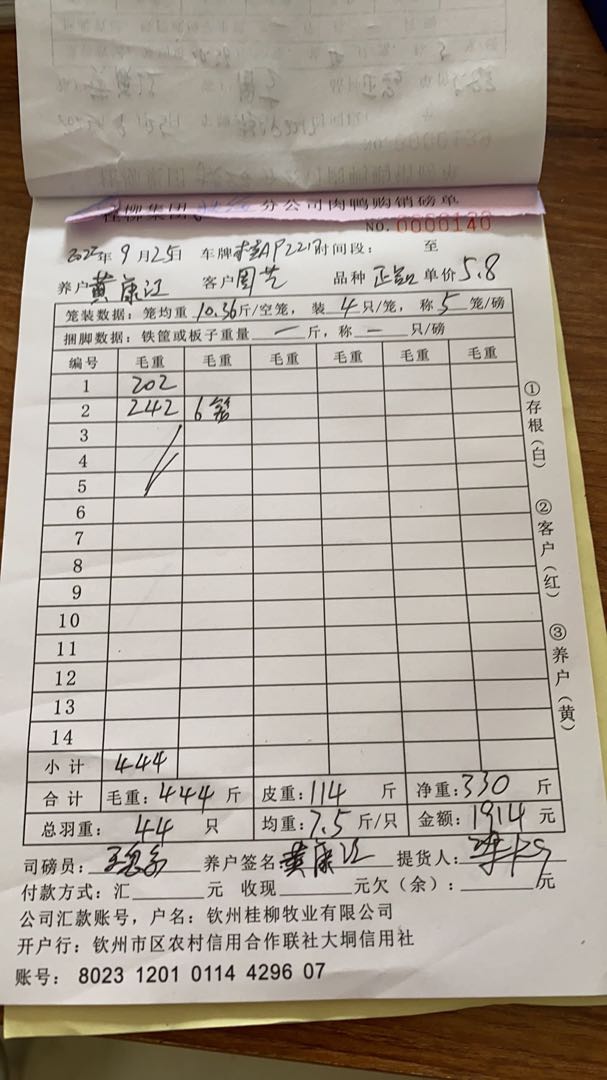 分公司肉鸭购销磅单
NO.0000140
2022年9月25日 车牌桂AP221 时间段: 至
养户 黄康江 客户 周芝 品种 单价 5.8
笼装数据:笼均重 10.36 斤/空笼,装 4 只/笼,称 5 笼/磅
捆脚数据:铁筐或板子重量 一 斤,称 一 只/磅
编号 毛重 毛重 毛重 毛重 毛重 毛重
1 202
2 242 6笼
3
4
5
6
7
8
9
10
11
12
13
14
小计 444
合计 毛重:444斤 皮重:114 斤 净重:330 斤
总羽重: 44 只 均重:7.5斤/只 金额:1914 元
司磅员: 养户签名 黄康江 提货人:
付款方式:汇 元 收现 元欠(余): 元
公司汇款账号,户名:钦州桂柳牧业有限公司
开户行:钦州市区农村信用合作联社大垌信用社
账号: 8023 1201 0114 4296 07
①存根(白)
②客户(红)
③养户(黄)